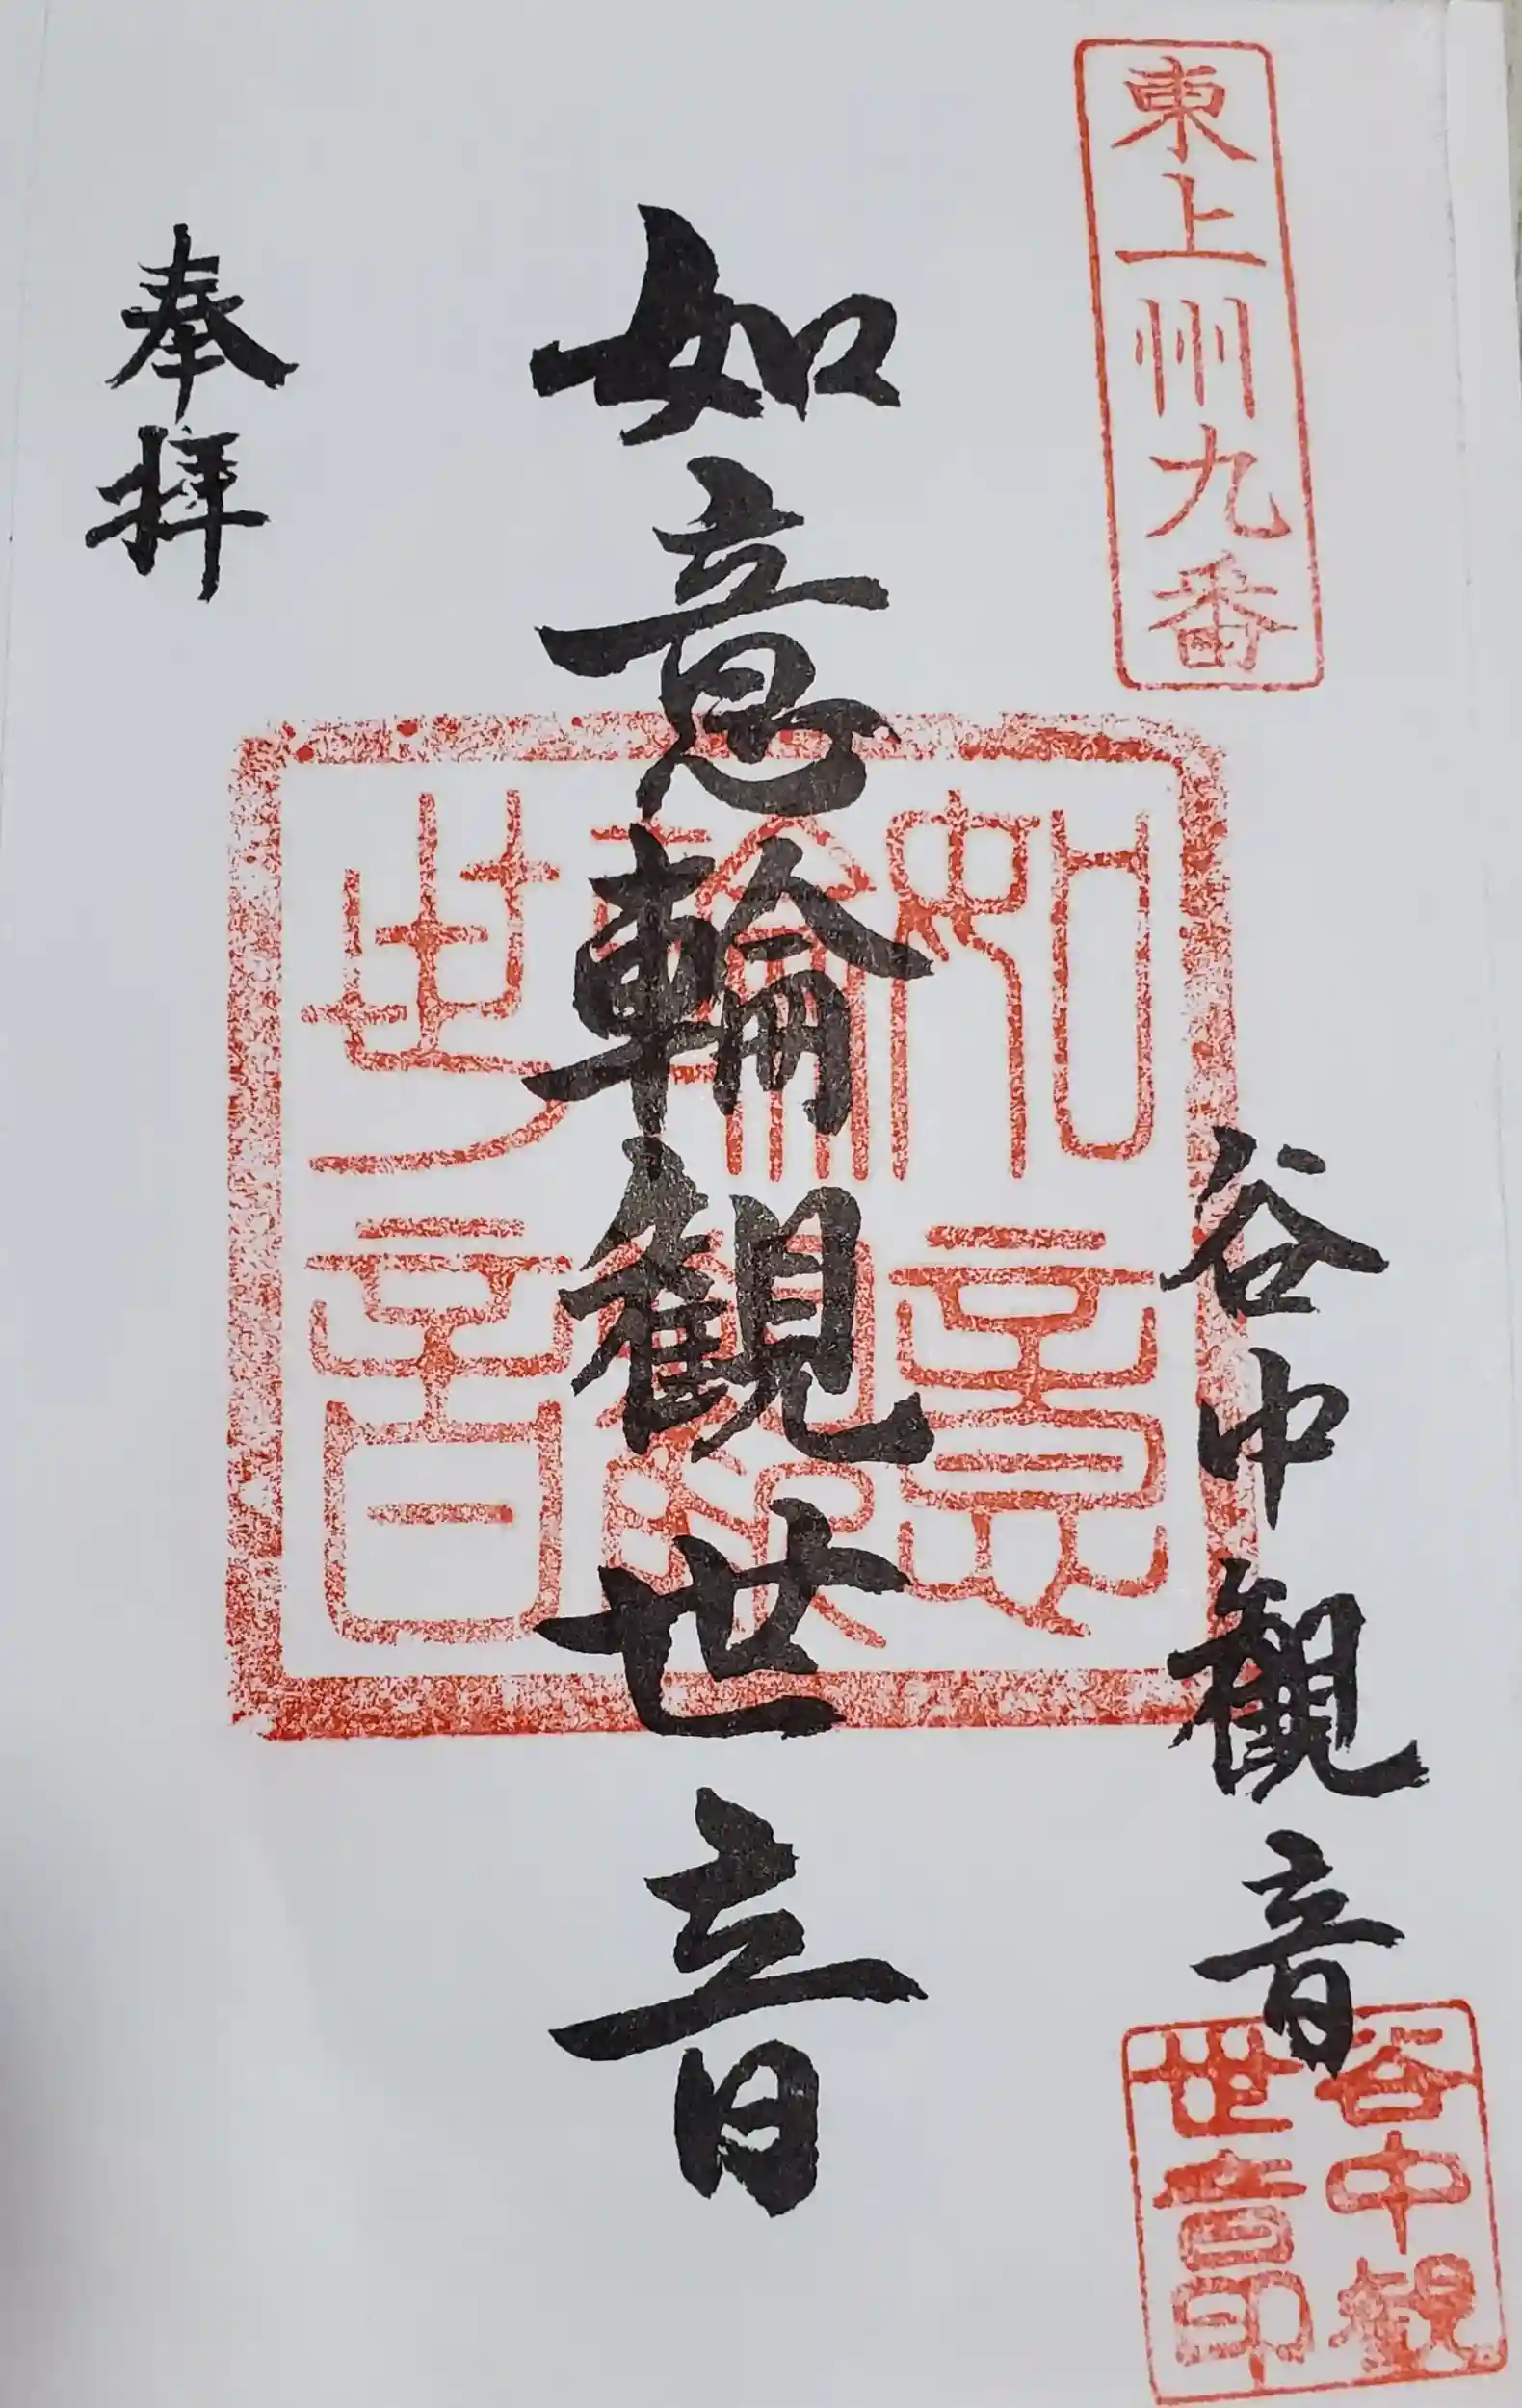 東上州九番
谷中観音
谷中観
世音印
如意輪観世音
如意
輪観
世音
奉拝